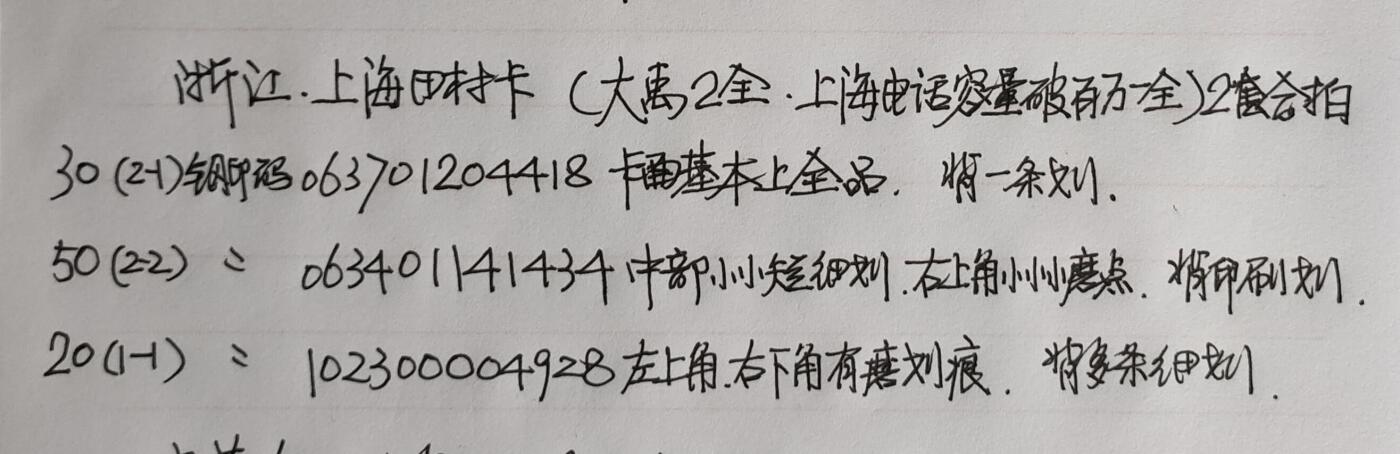 浙江.上海田村卡(大禹2全.上海电话容量破百万一全)2套合拍
30(2-1)钢印码063701204418卡面基本上全品.背一条划.
50(2-2) 〃 063401141434中部小小短细划.右上角小小小磨点.背印刷划.
20(1-1) 〃 102300004928左上角.右下角有磨划痕.背多条细划.